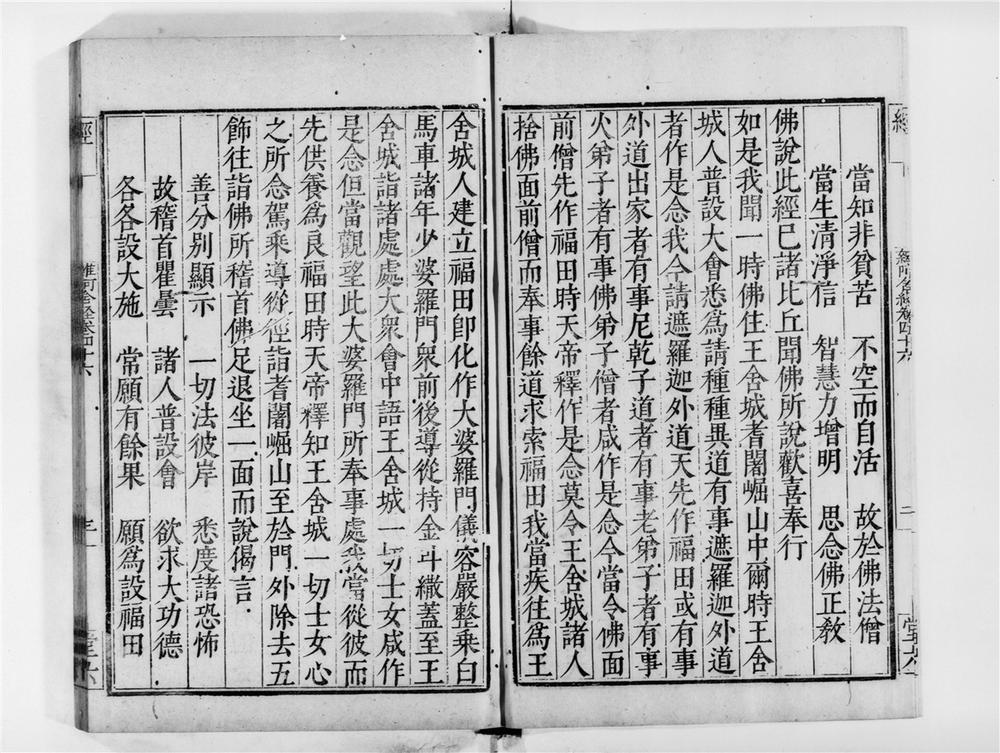 當知非貧苦　不空而自活　故於佛法僧
當生清淨信　智慧力增明　思念佛正教
佛說此經已諸比丘聞佛所說歡喜奉行
如是我聞一時佛住王舍城耆闍崛山中爾時王舍
城人普設大會悉為請種種異道有事遮羅迦外道
者作是念我今請遮羅迦外道天先作福田或有事
外道出家者有事尼乾子道者有事老弟子者有事
火弟子者有事佛弟子僧者咸作是念今當令佛面
前僧先作福田時天帝釋作是念莫令王舍城諸人
捨佛面前僧而奉事餘道求索福田我當疾往為王
舍城人建立福田即化作大婆羅門儀容嚴整乘白
馬車諸年少婆羅門衆前後導從持金斗繖蓋至王
舍城詣諸處處大衆會中語王舍城一切士女咸作
是念但當觀望此大婆羅門所奉事處我當從彼而
先供養為良福田時天帝釋知王舍城一切士女心
之所念駕乘導從徑詣耆闍崛山至於門外除去五
飾往詣佛所稽首佛足退坐一面而說偈言
善分別顯示　一切法彼岸　悉度諸恐怖
故稽首瞿曇　諸人普設會　欲求大功德
各各設大施　常願有餘果　願為設福田
經
雜阿含經卷四十六